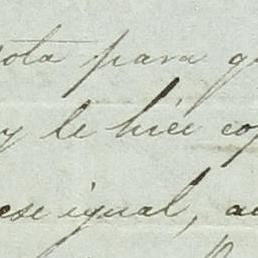 ota para q
y le hice cop
ese igual, a